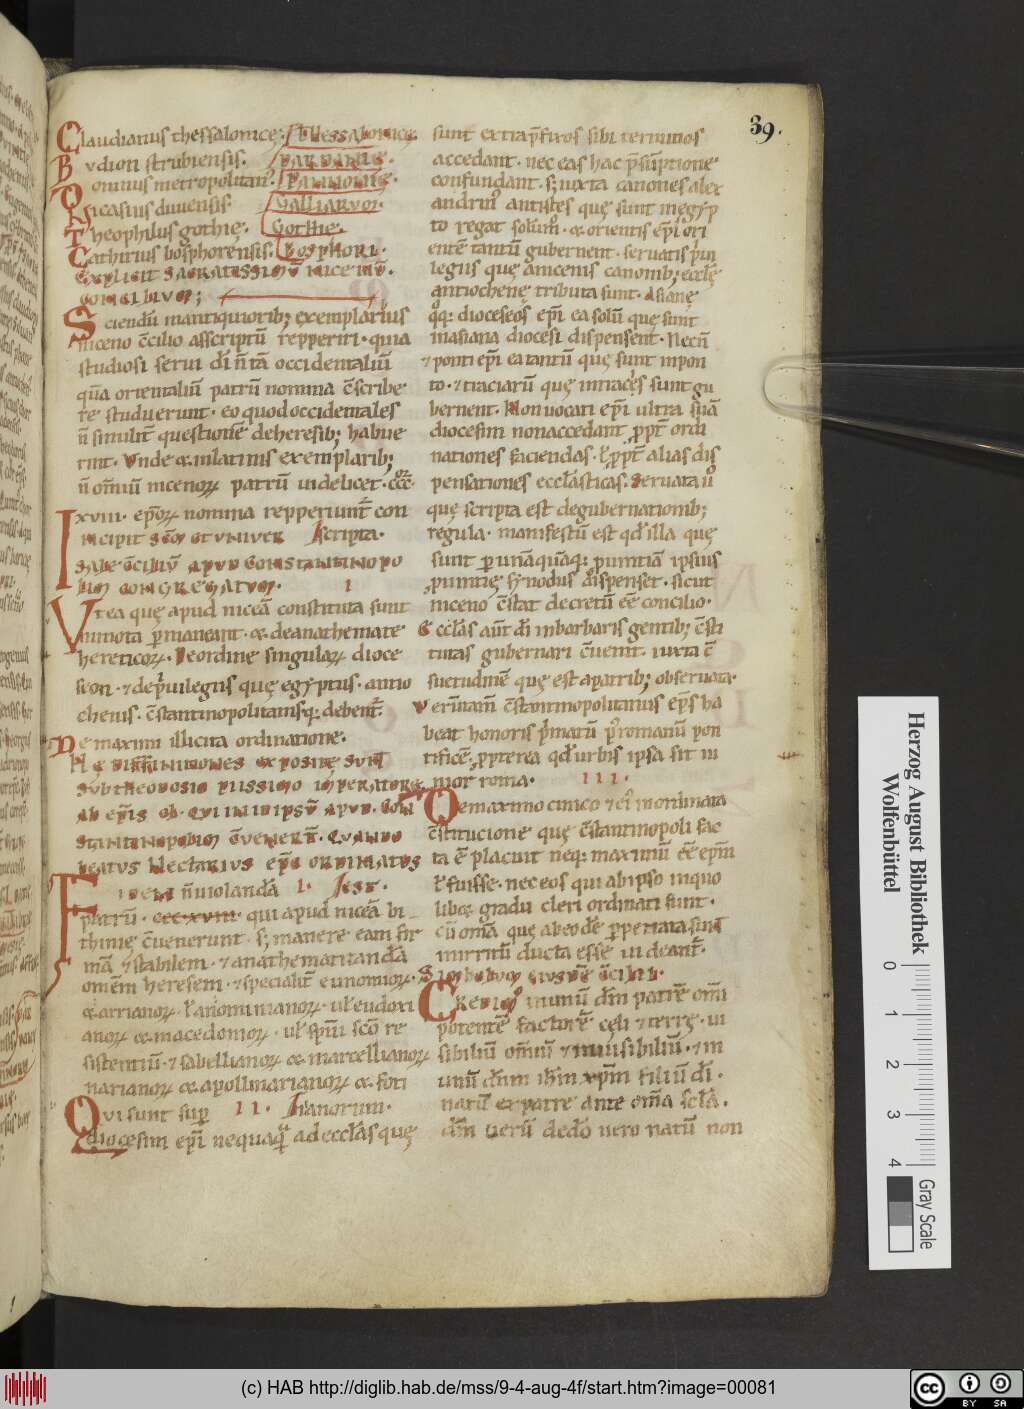 39.
Claudianus thessalonicę. Thessalonicę.
Budion strubiensis. Dardanię.
Domnus metropolitan᷒. Pannonię.
Nicasius diuuensis. Galliarum.
Theophilus gothię. Gothię.
Cathirius bosphorensis. Bosphori.
Explicit sacratissimū nicenū.
concilium;
Sciendū in antiquiorib; exemplarius
niceno c̄cilio asscriptū repperiri. quia
studiosi serui dī n̄ tā occidentaliū
quā orientaliū patrū nomina c̄scribe
re studuerunt. eo quod occidentales
n̄ similit̄ questionē de heresib; habue
rint. Vnde & in latinis exemplarib;
n̄ om̄iū nicenoꝝ patrū uidelicet. ccc.
xviii. ep̄oꝝ nomina repperiunt̄ con
Incipit scm̄ et uniuer scripta.
sale c̄ciliū apud constantinopo
lim congregatum. I
Vt ea quę apud niceā constituta sunt
inmota p̄maneant. & de anathemate
hereticoꝝ. De ordine singulaꝝ dioce
seon. & de p̄uilegiis quę egyptus. antio
chenis. c̄stantinopolitanisq; debent̄.
De maximi illicita ordinatione.
Hę diffinitiones expositę sunt
sub theodosio piissimo imperatore
ab ep̄is cl. qui in idipsū apud con
stantinopolim c̄uener̄t. quando
beatus Nectarius ep̄s ordinatus
Fidem n̄ uiolandā I. est.
patrū. ccc.xviii. qui apud niceā bi
thinię c̄uenerunt. s; manere eam fir
mā & stabilem. & anathematizandā
omēm heresem. & specialit̄ eunomioꝝ.
& arrianoꝝ. l anominianoꝝ. ul eudoxi
anoꝝ & macedonioꝝ. ul sp̄ui sc̄o re
sistentiū. & sabellianoꝝ & marcellianoꝝ
narianoꝝ & apollinarianoꝝ & foti
Qui sunt sup̄ II. nianorum.
diocesim ep̄i nequaquā ad ecclās quę
sunt extra p̄fixos sibi terminos
accedant. nec eas hac p̄sūptione
confundant. s; iuxta canones alex
andrinꝰ antistes quę sunt in ęgyp
to regat solūmꝰ. & orientis ep̄i ori
entē tantū gubernent. seruatis p̄ui
legiis quę a nicenis canonib; ecclę
antiochenę tributa sunt. Asianę
qꝫ; dioceseos ep̄i ea solū quę sunt
in asiana diocesi dispensent. Necn̄
& ponti ep̄i ea tantū quę sunt in pon
to. & traciarū quę in traces sunt gu
bernent. Non uocati ep̄i ultra suā
diocesim non accedant ꝓpt̄ ordi
nationes faciendas. l ꝓpt̄ alias dis
pensationes ecclāsticas. Seruata ū
quę scripta est de gubernationib;
regula. manifestū est qd̄ illa quę
sunt p unāquāq; puintiā ipsius
ꝓuintię synodus dispenset. sicut
niceno c̄stat decretū eē concilio.
Ecclās aūt dī in barbaris gentib; c̄sti
tutas gubernari c̄uenit. iuxta c̄
suetudinē quę est a patrib; obseruata.
Verūtam̄ c̄stantinopolitanus ep̄s ha
beat honoris p̄matū p̄ romanū pon
tificē. ꝓpterea qd̄ urbis ipsa sit iu
nior roma. III.
De maximo cinico & eiꝰ inordinata
c̄stitucione quę c̄stantinopoli fac
ta ē placuit neq; maximū eē ep̄m
l fuisse. nec eos qui ab ipso in quo
libet gradu cleri ordinati sunt.
cū om̄a quę ab eodē ꝑpetrata sunt
in irritū ducta esse uideant̄.
Simbolum eiusdē c̄cilii.
Credimꝰ in unū dm̄ patrē om̄i
potentē factorē cęli & terrę. ui
sibiliū om̄iū & inuisibiliū. & in
unū dn̄m ih̄m xp̄m filiū dī.
natū ex patre ante om̄a sclā.
dm̄ uerū de dō uero natū non
Herzog August Bibliothek
Wolfenbüttel
0 1 2 3 4
Gray Scale
(c) HAB http://diglib.hab.de/mss/9-4-aug-4f/start.htm?image=00081
cc BY SA